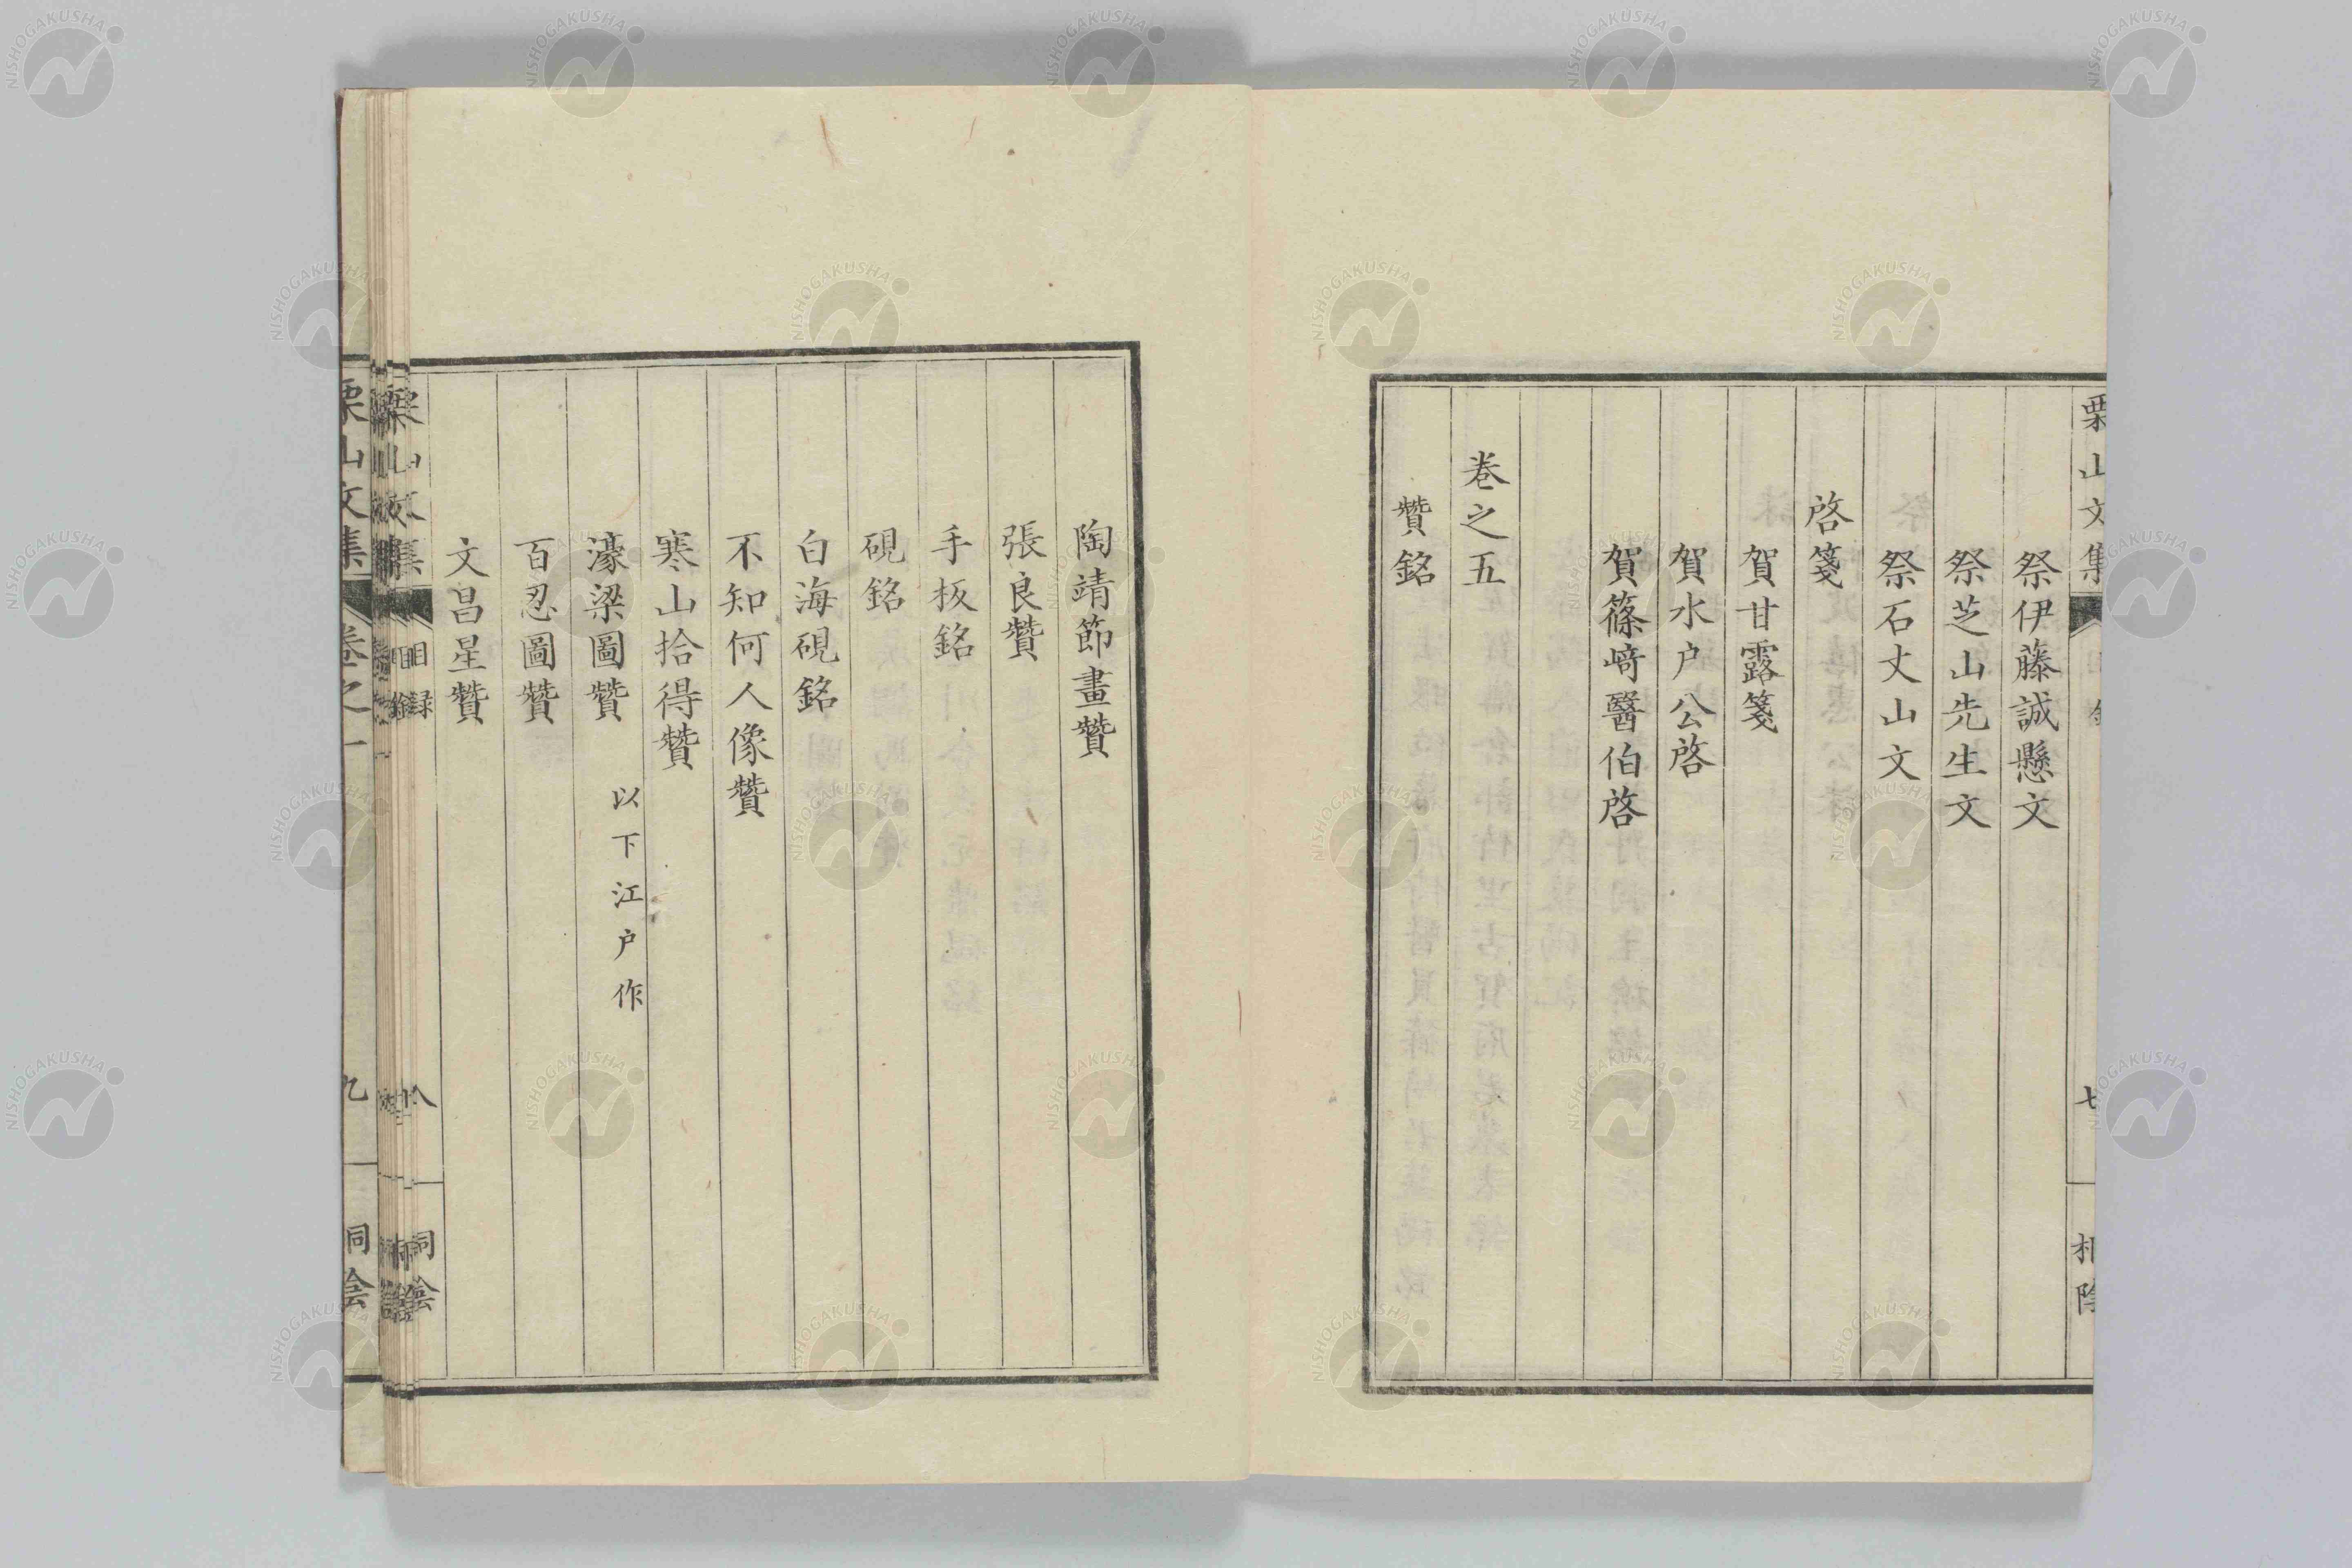 栗山文集
七
祭伊藤誠懸文
祭芝山先生文
祭石丈山文
啓箋
賀甘露箋
賀水户公啓
賀篠﨑醫伯啓
卷之五
贊銘
陶靖節畫贊
張良贊
手板銘
硯銘
白海硯銘
不知何人像贊
寒山拾得贊
濠梁圖贊 以下江户作
百忍圖贊
文昌星贊
目録
八
栗山文集
卷之一
九
NISHOGAKUSHA